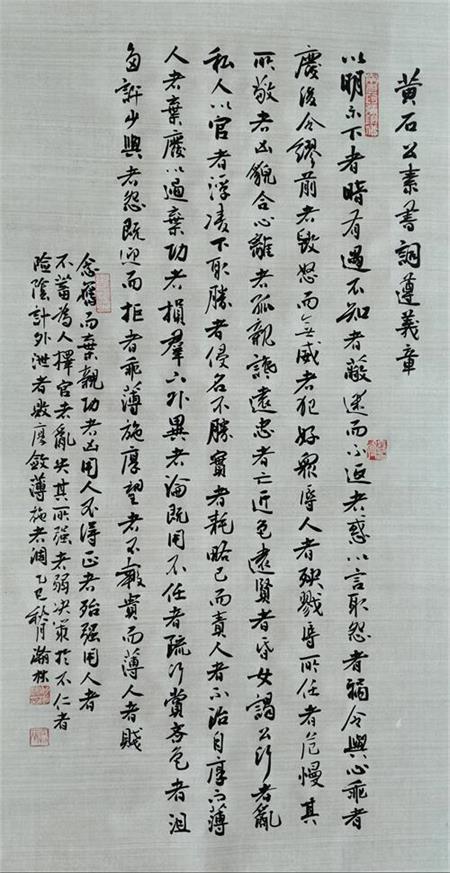 黄石公素書詞遵義章
以明示下者暗有過不知者蔽迷而不返者惑以言取怨者禍令與心乖者
廢後令繆前者毀怒而無威者犯好衆辱人者殃戮辱所任者危慢其
所敬者凶貌合心離者孤親讒遠忠者亡近色遠賢者昏女謁公行者亂
私人以官者浮凌下取勝者侵名不勝實者耗略己而責人者不治自厚而薄
人者棄廢以過棄功者損羣下外異者淪既用不任者疏行賞吝色者沮
多許少與者怨既迎而拒者乖薄施厚望者不報貴而薄人者賤
念舊而棄親功者凶用人不得正者殆强用人者
不蓄為人擇官者亂失其所强者弱决策於不仁者
險陰計外泄者敗厚斂薄施者凋乙巳秋月瀚林